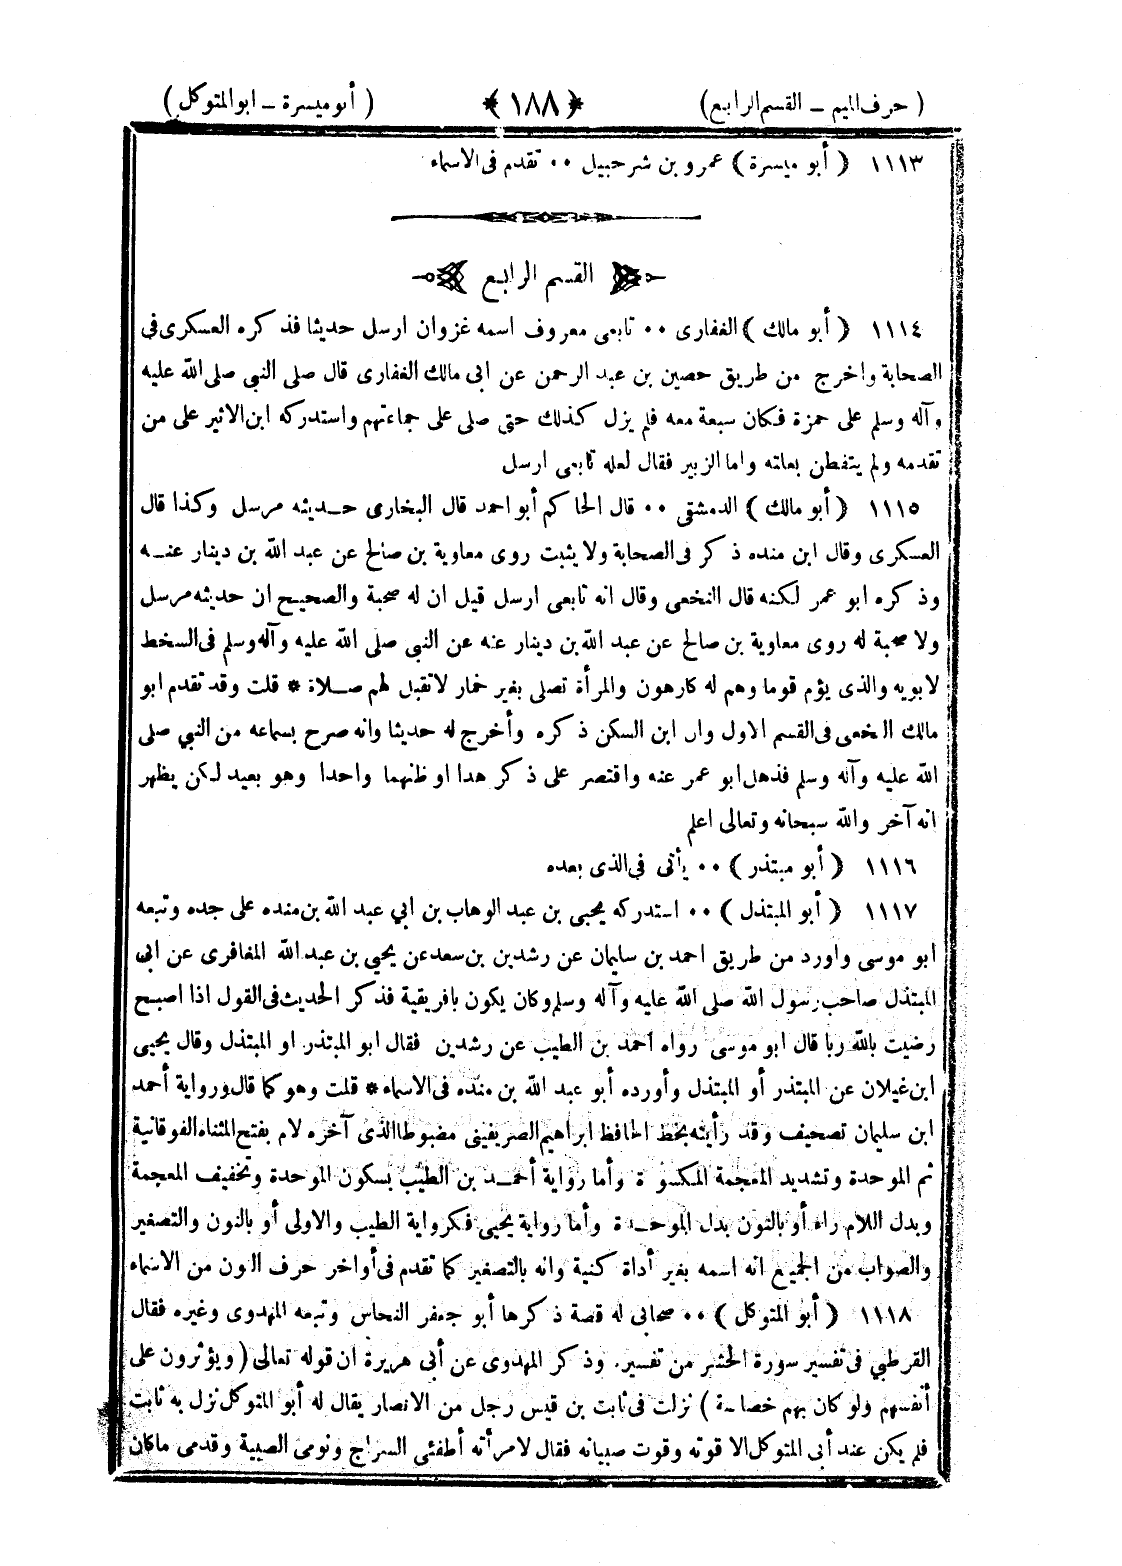 ( حرف الميم ـ القسم الرابع ) ﴿ ١٨٨ ﴾ ( أبو ميسرة ـ ابو المتوكل )
١١١٣ ( أبو ميسرة ) عمرو بن شرحبيل ٠٠ تقدم فى الاسماء
القسم الرابع
١١١٤ ( أبو مالك ) الغفارى ٠٠ تابعى معروف اسمه غزوان ارسل حديثا فذكره العسكرى فى
الصحابة واخرج من طريق حصين بن عبد الرحمن عن ابى مالك الغفارى قال صلى النبى صلى الله عليه
وآله وسلم على حمزة فكان سبعة معه فلم يزل كذلك حتى صلى على جماعتهم واستدركه ابن الاثير على من
تقدمه ولم يتفطن بعلته واما الزبير فقال لعله تابعى ارسل
١١١٥ ( أبو مالك ) الدمشقى ٠٠ قال الحاكم أبو احمد قال البخارى حديثه مرسل وكذا قال
العسكرى وقال ابن منده ذكر فى الصحابة ولا يثبت روى معاوية بن صالح عن عبد الله بن دينار عنه
وذكره ابو عمر لكنه قال النخعى وقال انه تابعى ارسل قيل ان له صحبة والصحيح ان حديثه مرسل
ولا صحبة له روى معاوية بن صالح عن عبد الله بن دينار عنه عن النبى صلى الله عليه وآله وسلم فى السخط
لابويه والذى يؤم قوما وهم له كارهون والمرأة تصلى بغير خمار لا تقبل لهم صلاة * قلت وقد تقدم ابو
مالك النخعى فى القسم الاول وان ابن السكن ذكره وأخرج له حديثا وانه صرح بسماعه من النبي صلى
الله عليه وآله وسلم فذهل ابو عمر عنه واقتصر على ذكر هذا او ظنهما واحدا وهو بعيد لكن يظهر
انه آخر والله سبحانه وتعالى اعلم
١١١٦ ( أبو مبتذر ) ٠٠ يأتى فى الذى بعده
١١١٧ ( أبو المبتذل ) ٠٠ استدركه يحيى بن عبد الوهاب بن ابي عبد الله بن منده على جده وتبعه
ابو موسى واورد من طريق احمد بن سليمان عن رشدين بن سعد عن يحيى بن عبد الله المغافرى عن ابى
المبتذل صاحب رسول الله صلى الله عليه وآله وسلم وكان يكون بافريقية فذكر الحديث فى القول اذا اصبح
رضيت بالله ربا قال ابو موسى رواه احمد بن الطيب عن رشدين فقال ابو المبتذر او المبتذل وقال يحيى
ابن غيلان عن المبتذر أو المبتذل وأورده أبو عبد الله بن منده فى الاسماء * قلت وهو كما قال ورواية أحمد
ابن سليمان تصحيف وقد رأيته بخط الحافظ ابراهيم الصريفينى مضبوطا الذى آخره لام بفتح المثناه الفوقانية
ثم الموحدة وتشديد المعجمة المكسورة وأما رواية أحمد بن الطيب بسكون الموحدة وتخفيف المعجمة
وبدل اللام راء أو بالنون بدل الموحدة وأما رواية يحيى فكرواية الطيب والاولى أو بالنون والتصغير
والصواب من الجميع انه اسمه بغير أداة كنية وانه بالتصغير كما تقدم فى أواخر حرف النون من الاسماء
١١١٨ ( أبو المتوكل ) ٠٠ صحابى له قصة ذكرها أبو جعفر النحاس وتبعه المهدوى وغيره فقال
القرطبي فى تفسير سورة الحشر من تفسيره وذكر المهدوى عن أبى هريرة ان قوله تعالى ( ويؤثرون على
أنفسهم ولو كان بهم خصاصة ) نزلت فى ثابت بن قيس رجل من الانصار يقال له أبو المتوكل نزل به ثابت
فلم يكن عند أبى المتوكل الا قوته وقوت صبيانه فقال لامرأته أطفئى السراج ونومى الصبية وقدمى ماكان